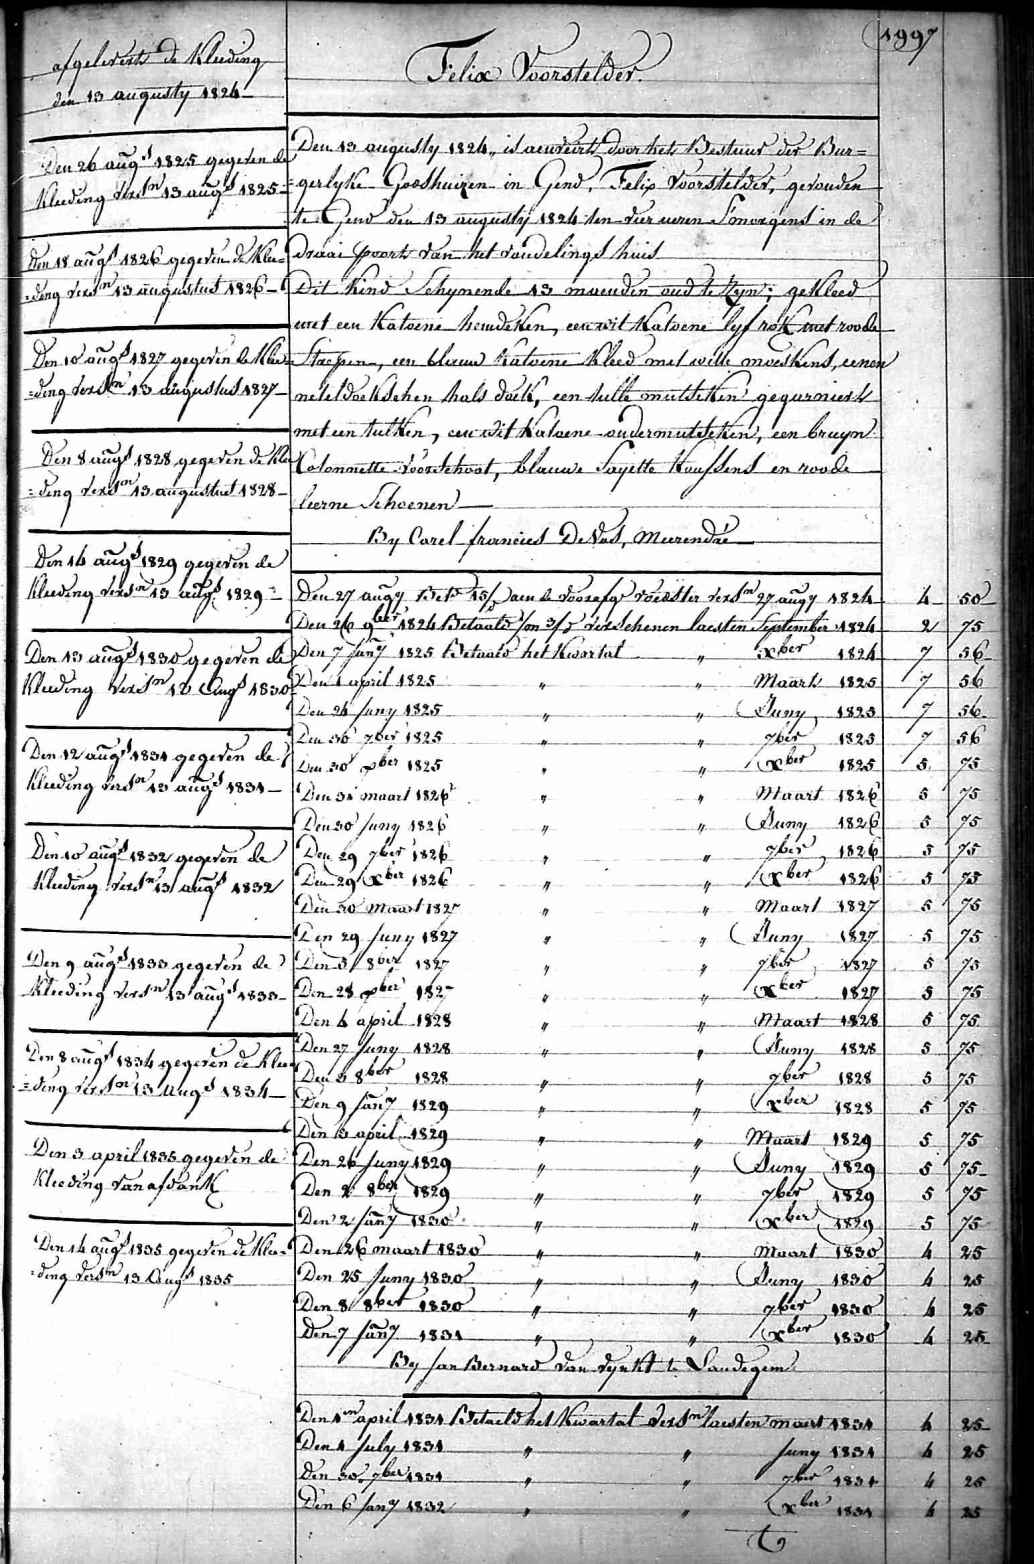 1997
afgeleverd de Kleeding
den 13 augusty 1824
Den 26 augs 1825 gegeven de
Kleeding versn 13 augs 1825
Den 18 augs 1826 gegeven de Klee=
=ding versn 13 augustus 1826
Den 10 augs 1827 gegeven de Klee
=ding versn 13 augustus 1827
Den 8 augs 1828 gegeven de Klee
=ding versn 13 augustus 1828
Den 14 augs 1829 gegeven de
Kleeding versn 13 augs 1829
Den 13 augs 1830 gegeven de
Kleeding versn 13 Augs 1830
Den 12 augs 1831 gegeven de
Kleeding versn 13 augs 1831
Den 10 augs 1832 gegeven de
Kleeding versn 13 augs 1832
Den 9 augs 1833 gegeven de
Kleeding versn 13 augs 1833
Den 8 augs 1834 gegeven de Klee
=ding versn 13 Augs 1834
Den 3 april 1835 gegeven de
Kleeding van afdank
Den 14 augs 1835 gegeven de Klee=
=ding versn 13 Augs 1835
Felix Voorstelder.
Den 13 augusty 1824, is door het Bestuur der Bur=
=gerlyke Godshuizen in Gend, Felix Voorstelder, gevonden
te Gend den 13 augusty 1824 ten vier uren Smorgens in de
draai poort van het vondelings huis
Dit Kind Schynende 13 maenden oud te Zyn; gekleed
met een Katoene hemdeken, een wit Katoene lyfrok met roode
Streepen, een blauw Katoene Kleed met witte moeskens, eenen
neteldoekschen hals doek, een tulle mutseken gegarniert
met een tulken, een wit Katoene ondermutseken, een bruyn
Colonnette Voorschoot, blauwe Sayette Koussens en roode
leerne Schoenen
By Carel francies DeVos, Meerendré
Den 27 augy Betd voor versn 27 augy 1824 4 50
Den 26 9ber 1824 Betaald verschenen laesten September 1824 2 75
Den 7 Jany 1825 Betaald het Kwartal " Xber 1824 7 56
Den 1 april 1825 " " Maart 1825 7 56
Den 24 Juny 1825 " " Juny 1825 7 56
Den 30 7ber 1825 " " 7ber 1825 7 56
Den 30 xber 1825 " " Xber 1825 5 75
Den 31 maart 1826 " " Maart 1826 5 75
Den 30 Juny 1826 " " Juny 1826 5 75
Den 29 7ber 1826 " " 7ber 1826 5 75
Den 29 Xber 1826 " " Xber 1826 5 75
Den 30 maart 1827 " " Maart 1827 5 75
Den 29 Juny 1827 " " Juny 1827 5 75
Den 5 8ber 1827 " " 7ber 1827 5 75
Den 28 xber 1827 " " Xber 1827 5 75
Den 4 april 1828 " " Maart 1828 5 75
Den 27 Juny 1828 " " Juny 1828 5 75
Den 3 8ber 1828 " " 7ber 1828 5 75
Den 9 Jany 1829 " " Xber 1828 5 75
Den 3 april 1829 " " Maart 1829 5 75
Den 26 Juny 1829 " " Juny 1829 5 75
Den 2 8ber 1829 " " 7ber 1829 5 75
Den 2 Jany 1830 " " Xber 1829 5 75
Den 26 maart 1830 " " Maart 1830 4 25
Den 25 Juny 1830 " " Juny 1830 4 25
Den 8 8ber 1830 " " 7ber 1830 4 25
Den 7 Jany 1831 " " Xber 1830 4 25
By Jan Bernard Van Vynkt te Landegem
Den 1en april 1831 Betaeld het Kwartal versn laesten maart 1831 4 25
Den 1 July 1831 " " Juny 1831 4 25
Den 30 7ber 1831 " " 7ber 1831 4 25
Den 6 Jany 1832 " " Xber 1831 4 25